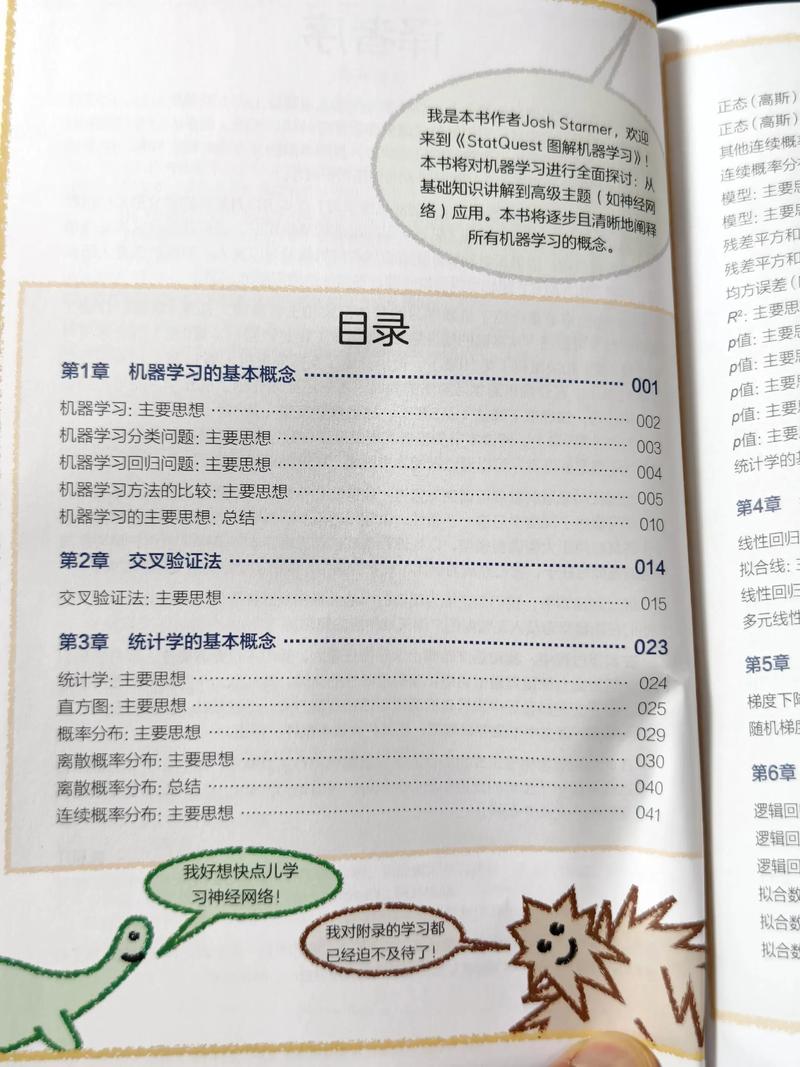 我是本书作者Josh Starmer，欢迎
来到《StatQuest 图解机器学习》！
本书将对机器学习进行全面探讨：从
基础知识讲解到高级主题（如神经网
络）应用。本书将逐步且清晰地阐释
所有机器学习的概念。
目录
第1章 机器学习的基本概念 001
机器学习：主要思想 002
机器学习分类问题：主要思想 003
机器学习回归问题：主要思想 004
机器学习方法的比较：主要思想 005
机器学习的主要思想：总结 010
第2章 交叉验证法 014
交叉验证法：主要思想 015
第3章 统计学的基本概念 023
统计学：主要思想 024
直方图：主要思想 025
概率分布：主要思想 029
离散概率分布：主要思想 030
离散概率分布：总结 040
连续概率分布：主要思想 041
我好想快点儿学
习神经网络！
我对附录的学习都
已经迫不及待了！
正态（高斯）
正态（高斯）
其他连续概率
连续概率分布
模型：主要思
模型：主要思
残差平方和
残差平方和
均方误差（
R²：主要思
p值：主要思
p值：主要思
p值：主要思
p值：主要思
p值：主要思
统计学的基
第4章
线性回归
拟合线：
线性回归
多元线性
第5章
梯度下降
随机梯度
第6章
逻辑回
逻辑回
逻辑回
拟合数
拟合数
拟合数